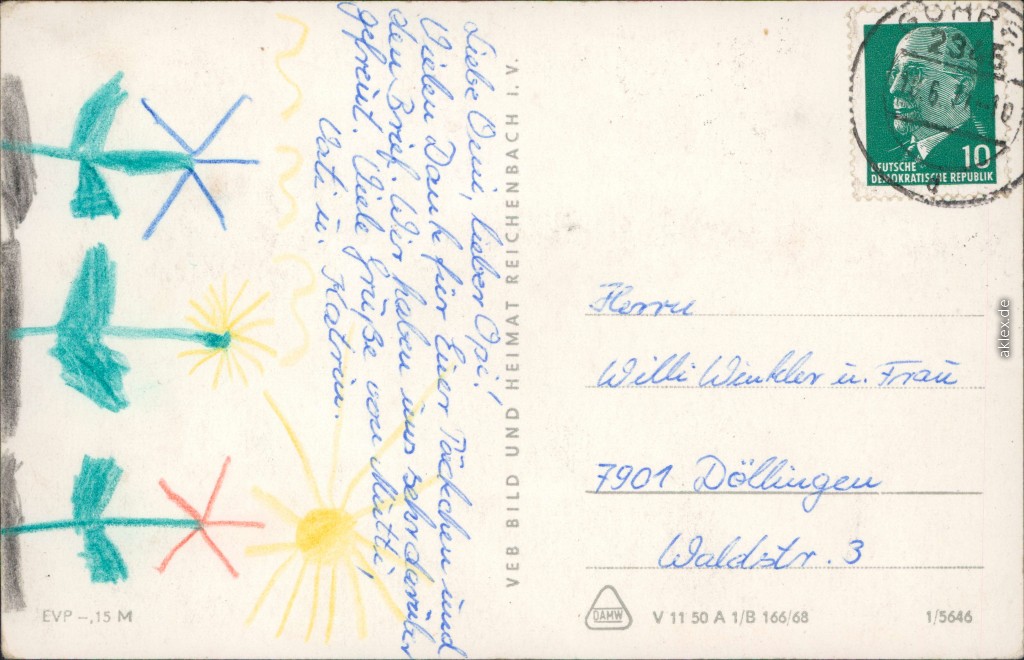 Liebe Omi, lieber Opi!
Vielen Dank für Euer Päckchen und
den Brief. Wir haben uns sehr darüber
gefreut. Viele Grüße von Mutti,
Vati u. Katrin.
VEB BILD UND HEIMAT REICHENBACH I. V.
10
DEUTSCHE
DEMOKRATISCHE REPUBLIK
Herrn
Willi Winkler u. Frau
7901 Döllingen
Waldstr. 3
EVP –,15 M
DAMW
V 11 50 A 1/B 166/68
1/5646
aklex.de